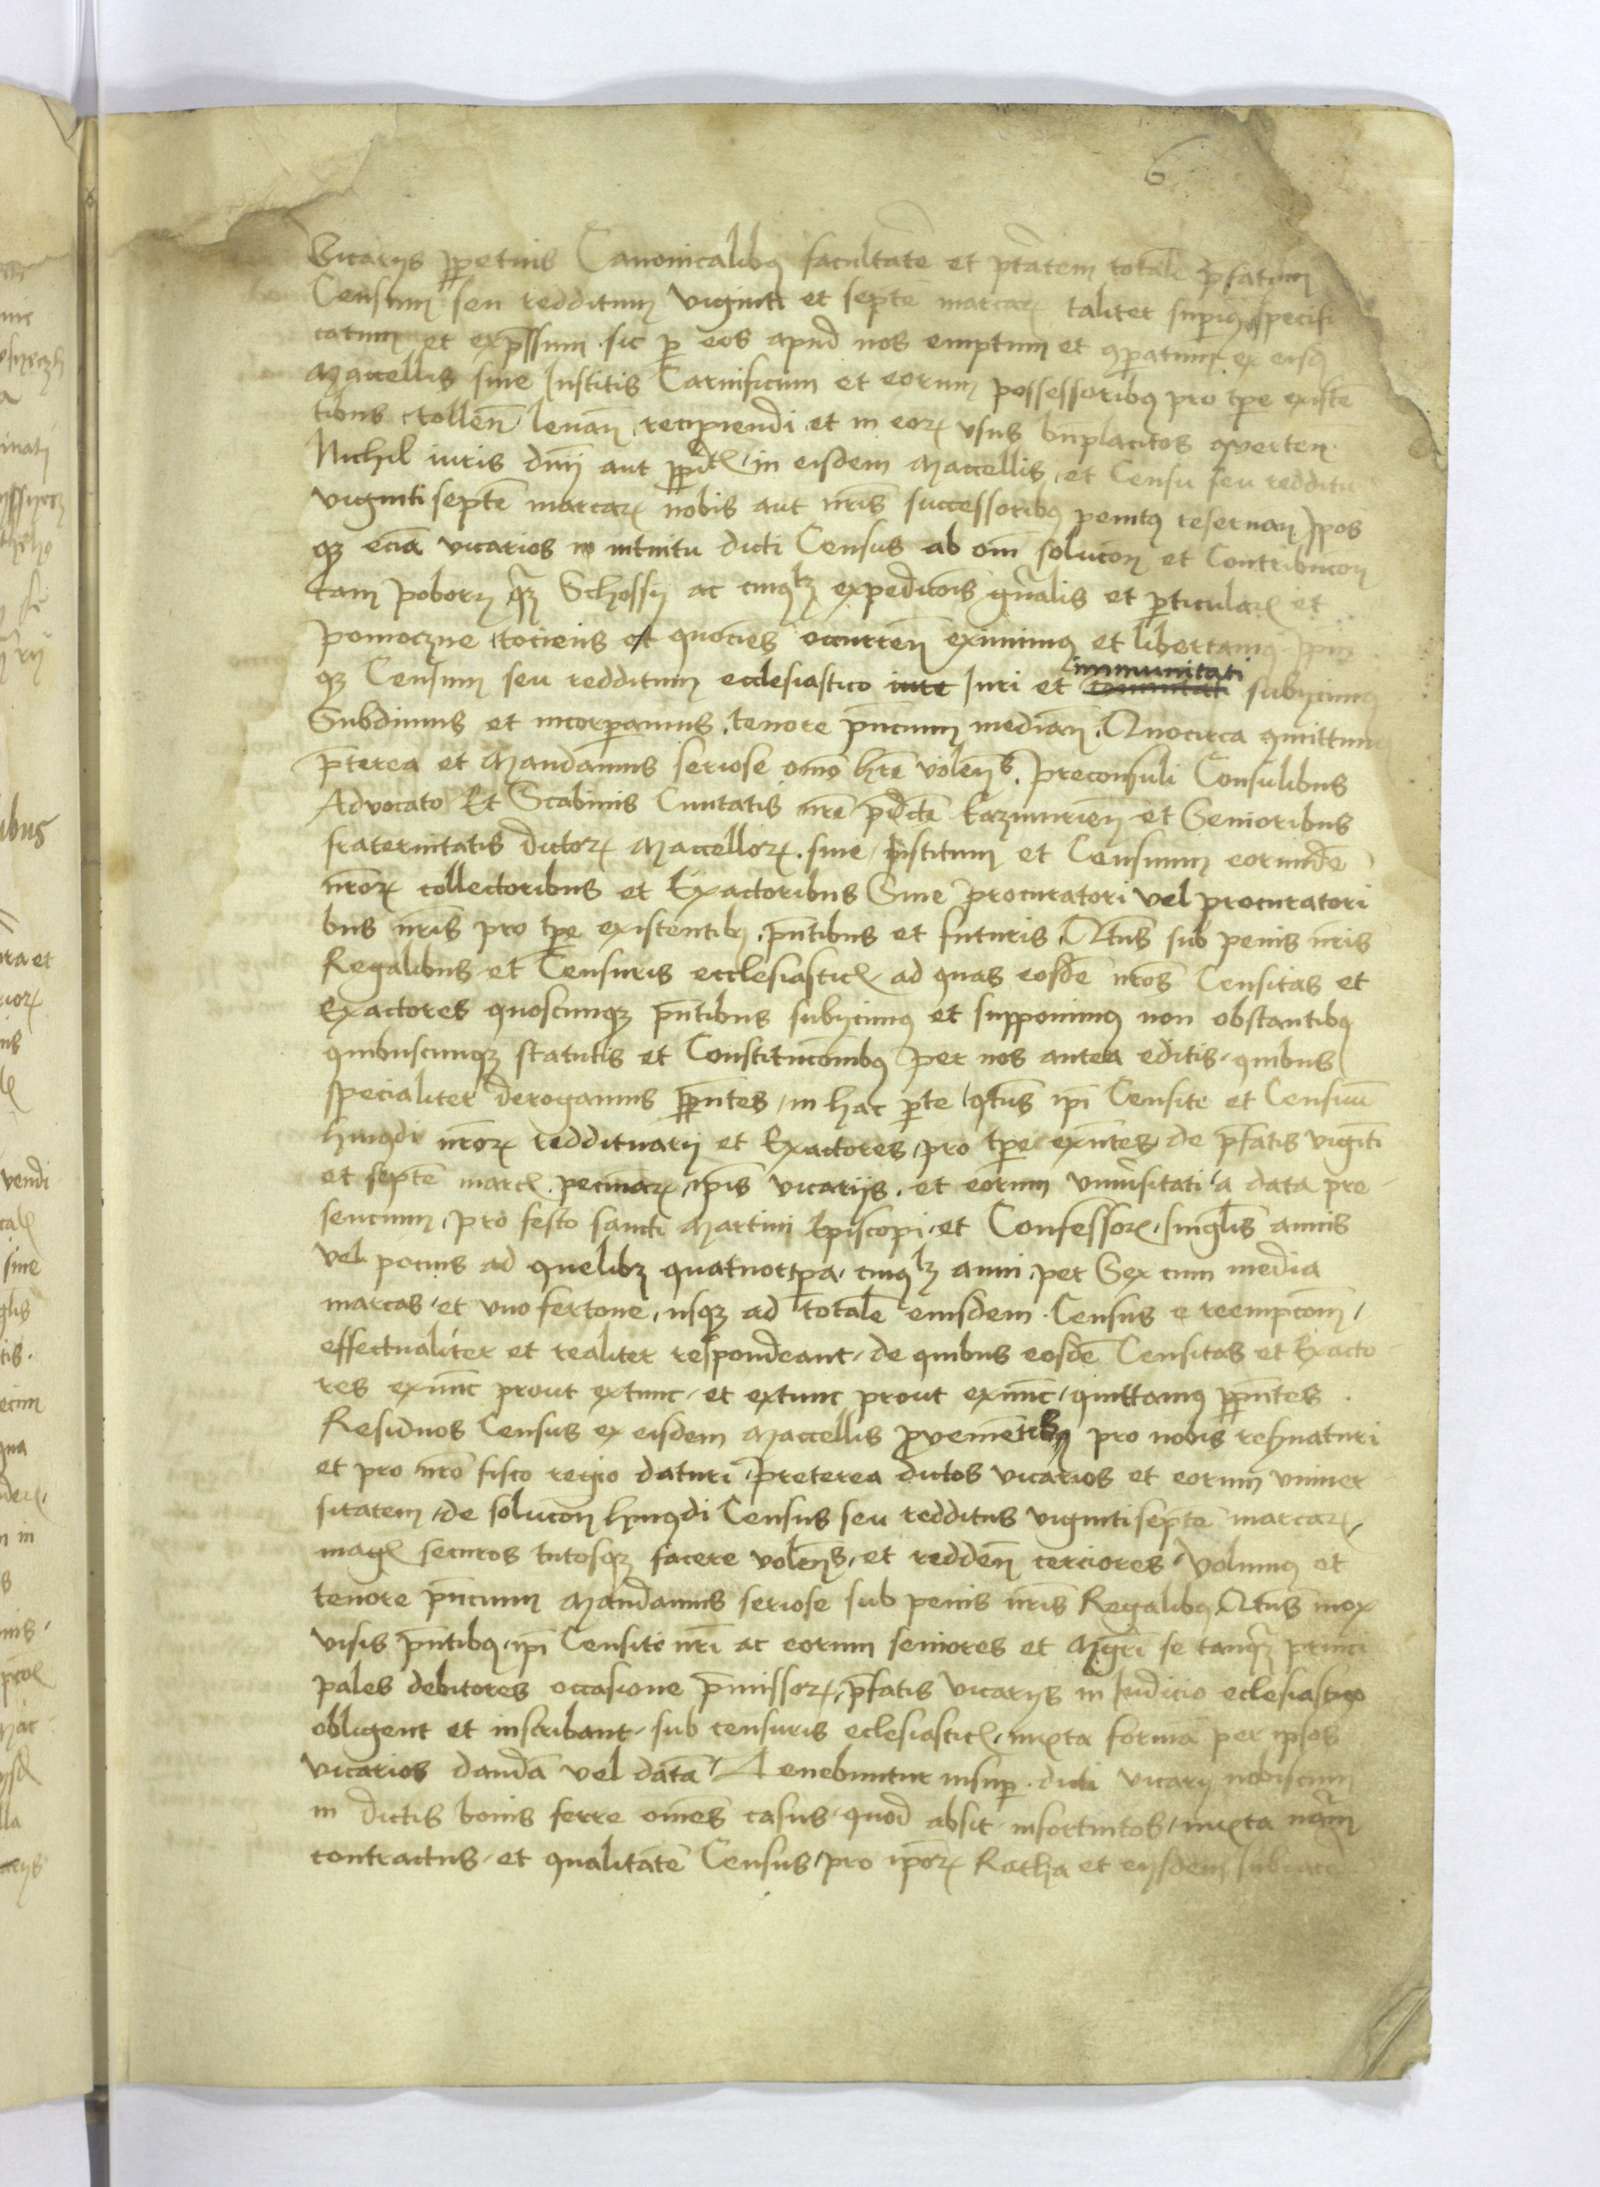 6
Vicarijs ppetuis Canonicalibus facultate et ptatem totale pfatum
Censum seu redditum viginti et septe marcar taliter superius specifi
catum et expssum sic p eos apud nos emptum et cparatum ex eisd
Maccellis sive Institis Carnificum et eorum possessoribus pro tpe existe
tibus tollen levan recipiendi et in eor usus bnplacitos converten
Nichil iuris dnii aut in eisdem Maccellis et Censu seu redditu
viginti septe marcar nobis aut nris successoribus penitus reservan Ipos
qz ecia vicarios in intuitu dicti Census ab omi solucon et Contribucon
tam poborij qz Schossij ac cuiuslibz expedicois gnalis et pticular et
pomoczne tociens et quocies occurren eximimus et libertamus Ipm
qz Censum seu redditum ecclesiastico iure Iuri et immunitati subijcimus
Subdimus et incorpamus tenore pncium median Quocirca cmittimus
pterea et Mandamus seriose omo hre volens Preconsuli Consulibus
Advocato Et Scabinis Civitatis nre pdcte Kazimirien et Senioribus
fraternitatis dictor Maccellor sive institum et Censuum eorunde
nror collectoribus et Exactoribus Sive procuratori vel procuratori
bus nris pro tpe existentibz pntibus et futuris Qtus sub penis nris
Regalibus et Censuris ecclesiastic ad quas eosde nros Censitas et
Exactores quoscunqz pntibus subijcimus et supponimus non obstantibus
quibuscunqz statutis et Constitucoibus per nos antea editis quibus
specialiter derogamus ppntes in hac pte qtus ipi Censite et Censuu
huiusdi nror reddituarij et Exactores pro tpe exntes de pfatis viginti
et septe marc pecuniar ipis vicarijs et eorum universitati a data pre
sencium pro festo sancti Martini Episcopi et Confessor singlis annis
vel pocius ad quelibz quatuortpa cuiuslibz anni per Sex cum media
marcas et uno fertone usqz ad totale eiusdem Census e reempcom
effectualiter et realiter respondeant de quibus eosde Censitas et Exacto
res exnunc prout extunc et extunc prout exnunc quittamus ppntes
Residuos Census ex eisdem Maccellis provenietibus pro nobis reservaturi
et pro nro fisco regio daturi Preterea dictos vicarios et eorum univer
sitatem de solucon huiusdi Census seu redditus viginti septe marcar
mag securos tutosqz facere volens et redden cerciores Volumus et
tenore pncium Mandamus seriose sub penis nris Regalibus Qtus mox
visis pntibus ipi Censite nri ac eorum seniores et Mgri se tanqz princi
pales debitores occasione pmissor pfatis vicarijs in Iudicio eclesiastico
obligent et inscribant sub censuris eclesiastic iuxta forma per ipsos
vicarios danda vel data Tenebuntur insup dicti vicarij nobiscum
in dictis bonis ferre omes casus quod absit insortuitos iuxta
contractus et qualitate Census pro ipor Ratha et eijsdem